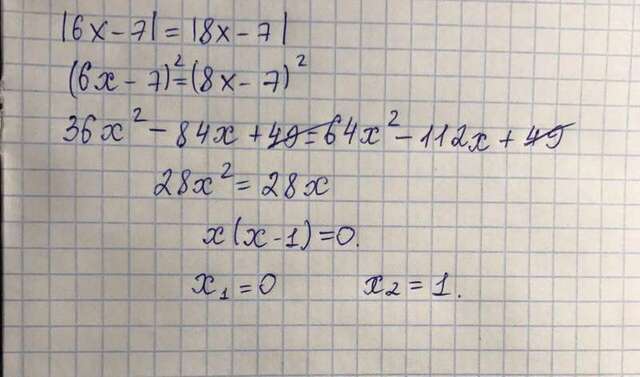 |6x-7|=|8x-7|
(6x-7)²=(8x-7)²
36x²-84x+49=64x²-112x+49
28x²=28x
x(x-1)=0.
x₁=0 x₂=1.